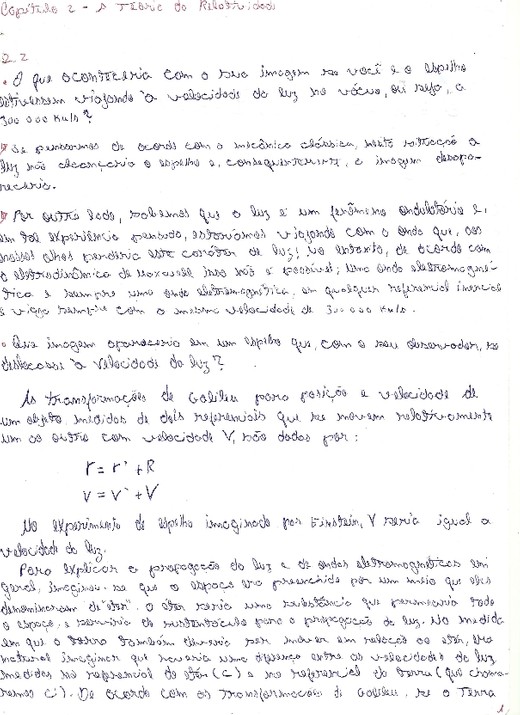 Capítulo 2 - A Teoria da Relatividade
2.2
• O que aconteceria com a sua imagem se você e o espelho
estivessem viajando à velocidade da luz no vácuo, ou seja, a
300 000 Km/s?
Se pensarmos de acordo com a mecânica clássica, nesta situação a
luz não alcançaria o espelho e, consequentemente, a imagem desapa-
receria.
Por outro lado, sabemos que a luz é um fenômeno ondulatório e,
em tal experiência pensada, estaríamos viajando com a onda que, aos
nossos olhos perderia este caráter de luz; no entanto, de acordo com
a eletrodinâmica de Maxwell isso não é possível; uma onda eletromagné-
tica é sempre uma onda eletromagnética, em qualquer referencial inercial
e viaja sempre com a mesma velocidade de 300 000 Km/s.
• Que imagem apareceria em um espelho que, com o seu observador, se
deslocasse à velocidade da luz?
As transformações de Galileu para posição e velocidade de
um objeto, medidos de dois referenciais que se movem relativamente
um ao outro com velocidade V, são dados por:
r = r' + R
v = v' + V
No experimento do espelho imaginado por Einstein, V seria igual a
velocidade da luz.
Para explicar a propagação da luz e de ondas eletromagnéticas em
geral, imaginou-se que o espaço era preenchido por um meio que eles
denominaram de "éter". O éter seria uma substância que permearia todo
o espaço, e serviria de sustentáculo para a propagação da luz. Na medida
em que a Terra também deveria se mover em relação ao éter, era
natural imaginar que haveria uma diferença entre as velocidades da luz
medidas no referencial do éter (c) e no referencial da Terra (que chama-
remos c'). De acordo com as transformações de Galileu, se a Terra